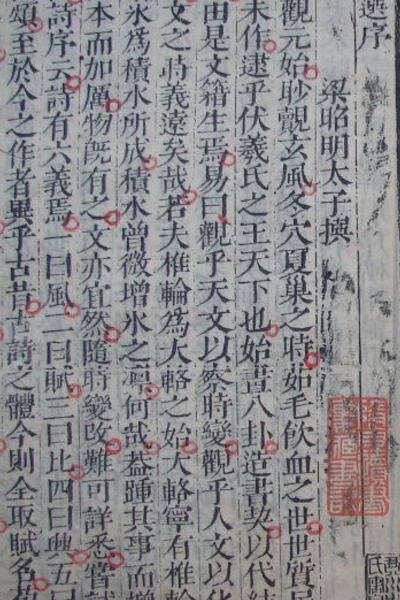 選序
梁昭明太子撰
觀元始眇覿玄風冬穴夏巢之時茹毛飲血之世世質民
未作逮乎伏羲氏之王天下也始畫八卦造書契以代結
由是文籍生焉易曰觀乎天文以察時變觀乎人文以化
文之時義遠矣哉若夫椎輪為大輅之始大輅寧有椎輪
氷為積水所成積水曾微增氷之凛何哉葢踵其事而增
本而加厲物既有之文亦宜然隨時變改難可詳悉嘗試
詩序云詩有六義焉一曰風二曰賦三曰比四曰興五曰
頌至於今之作者異乎古昔古詩之體今則全取賦名荀